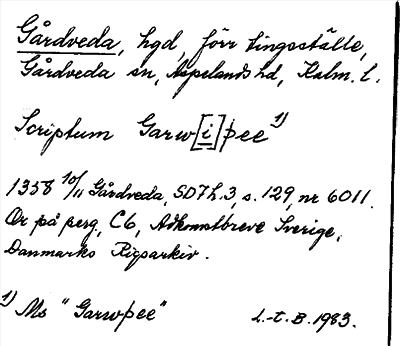 Gårdveda, hgd, förr tingsställe,
Gårdveda sn, Aspelands hd, Kalm. l.
Scriptum Garw[i]þee 1)
1358 10/11 Gårdveda, SD 7 h. 3, s. 129, nr 6011.
Or på perg, C6, Adkomstbreve Sverige,
Danmarks Rigsarkiv.
1) Ms "Garwþee"
L.-t. B. 1983.